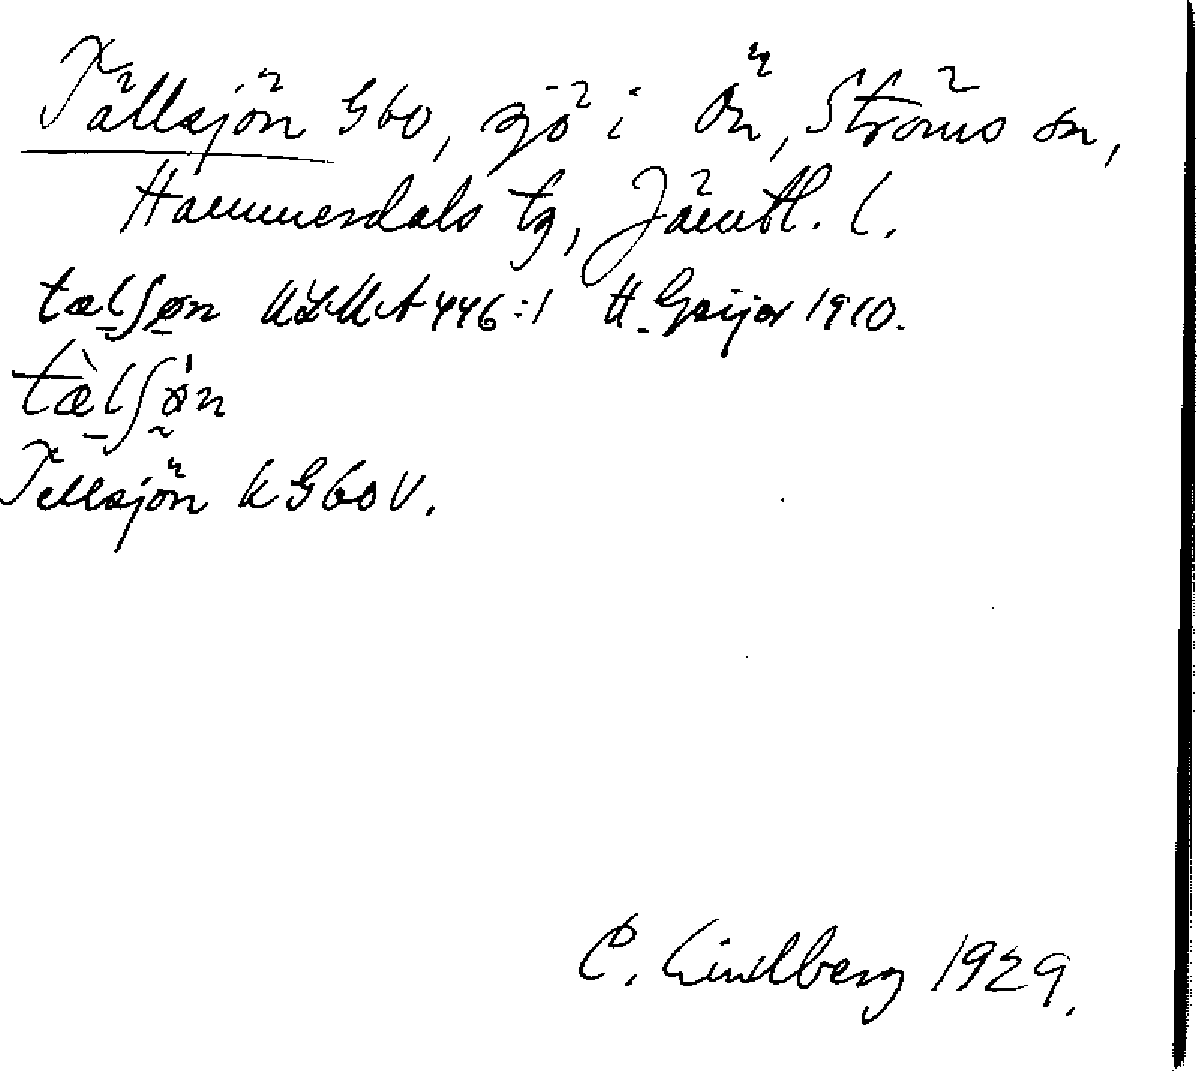 Tällsjön G60, sjö i Ön, Ströms sn,
Hammerdals tg, Jämtl. l.
tælʃøn ULMA 446:1 H. Geijer 1910.
tæ̀lʃøn
Tellsjön k G60 V.
C. Lindberg 1929.